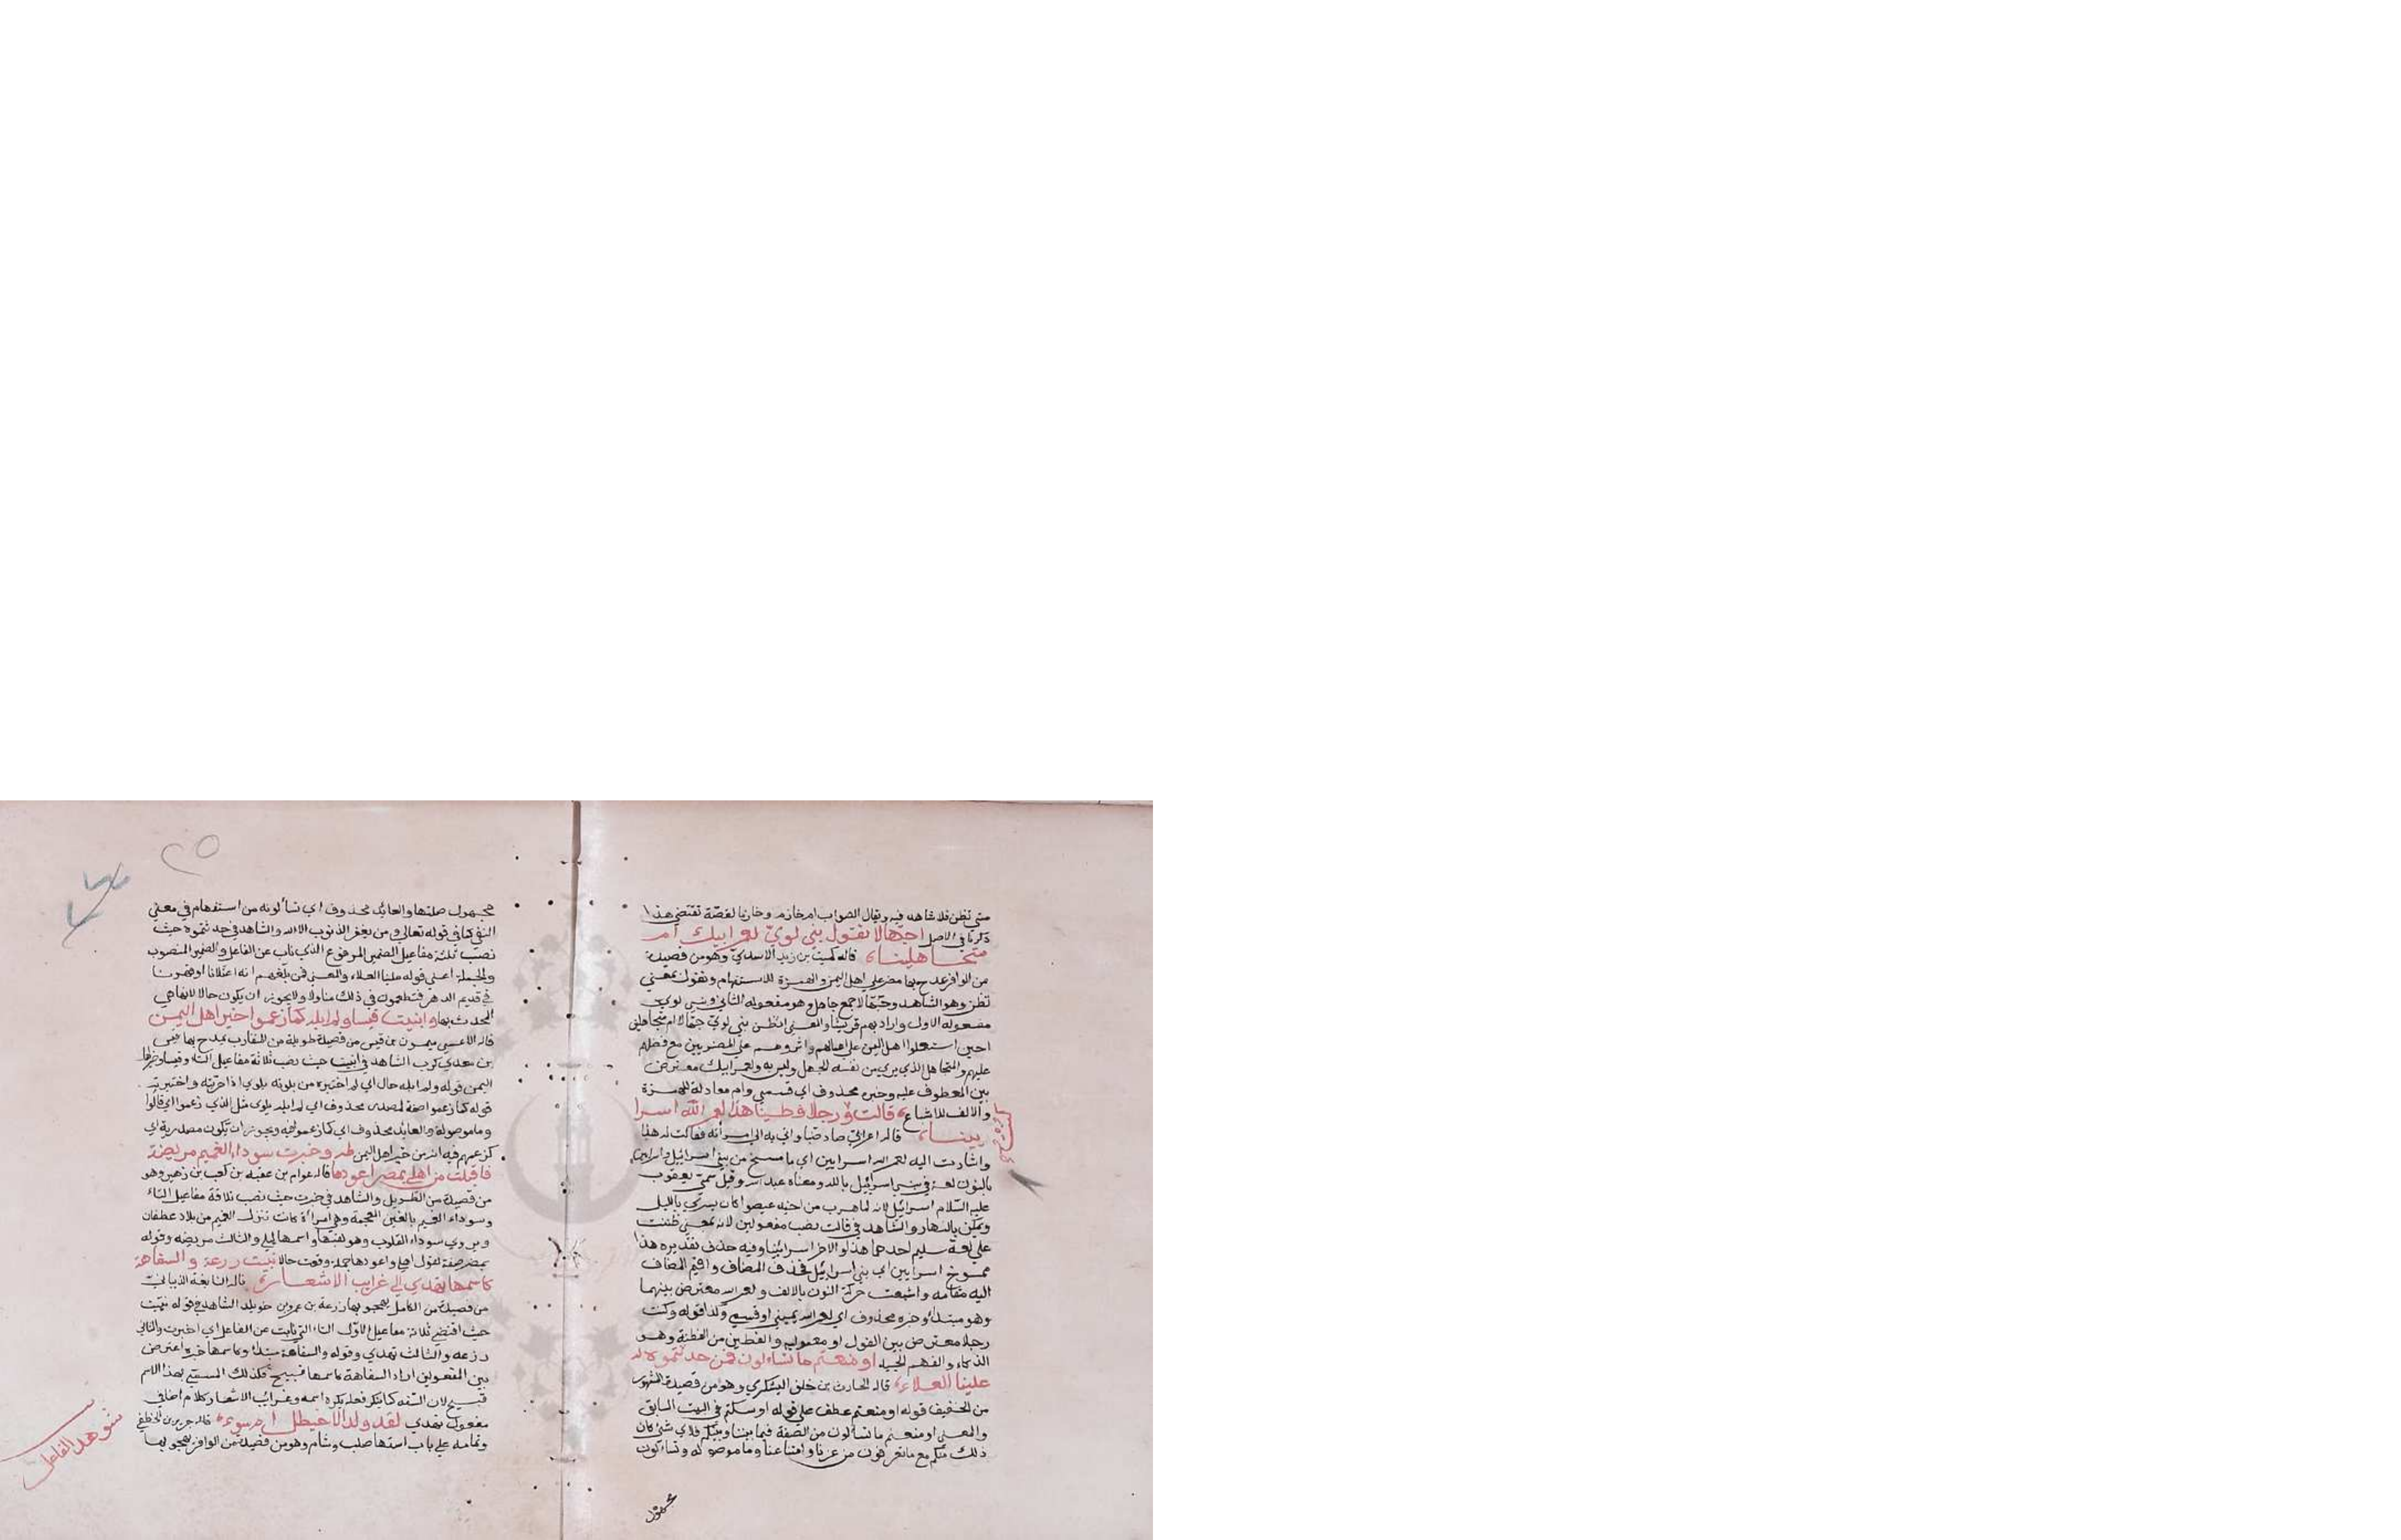 متى تظن فلا شاهد فيه ويقال الصواب ام خازم وخازما لقصة تقتضي هذا
ذكرنا في الاصل اجهالا تقول بني لوي لعمر ابيك ام
متجاهلينا قاله كميت بن زيد الاسدي وهو من قصيدة
من الوافر يمدح بها مضر على اهل اليمن والهمزة للاستفهام وتقول بمعنى
تظن وهو الشاهد وجهالا جمع جاهل وهو مفعوله الثاني وبني لوي
مفعوله الاول واراد بهم قريشا والمعنى اتظن بني لوي جهالا ام متجاهلين
احين استعملوا اهل اليمن على اعمالهم واثروهم على المضريين مع فضلهم
عليهم والمتجاهل الذي يري من نفسه الجهل وليس به ولعمر ابيك معترض
بين المعطوف عليه وخبره محذوف اي قسمي وام معادلة للهمزة
والالف للاشباع قالت وكنت رجلا فطينا هذا لعمر الله اسرا
يينا قاله اعرابي صاد ضبا واتي به الى امرأته فقالت له هذا
واشارت اليه لعمر الله اسرايين اي ما مسخ من بني اسرائيل واسرايين
بالنون لغة في اسرائيل باللام ومعناه عبد الله وقيل سمي يعقوب
عليه السلام اسرائيل لانه لما هرب من اخيه عيصو كان يسري بالليل
ويكمن بالنهار والشاهد في قالت نصب مفعولين لانه بمعنى ظننت
على لغة سليم احدهما هذا والاخر اسرائينا وفيه حذف تقديره هذا
ممسوخ اسرايين اي بني اسرائيل فحذف المضاف واقيم المضاف
اليه مقامه واشبعت حركة النون بالالف ولعمر الله معترض بينهما
وهو مبتدأ وخبره محذوف اي لعمر الله يميني او قسمي ولذا قوله وكنت
رجلا معترض بين القول او معموليه والفطين من الفطنة وهو
الذكاء والفهم الجيد او منعتم ما تسألون فمن حدثتموه له
علينا العلاء قاله الحارث بن حلزة اليشكري وهو من قصيدته المشهورة
من الخفيف قوله او منعتم عطف على قوله او سكتم في البيت السابق
والمعنى او منعتم ما تسألون من النصفة فيما بيننا وبينكم فلاي شيء كان
ذلك منكم مع ما تعرفون من عزنا وامتناعنا وما موصولة وتسألون
مجهول صلتها والعائد محذوف اي تسألونه من استفهام في معنى
النفي كما في قوله تعالى ومن يغفر الذنوب الا الله والشاهد في حدثتموه حيث
نصب ثلثة مفاعيل الضمير المرفوع الذي ناب عن الفاعل والضمير المنصوب
والجملة اعني قوله علينا العلاء والمعنى فمن بلغكم انه اعتلانا او قهرنا
في قديم الدهر فتطمعون في ذلك منا ولا يجوز ان يكون حالا لانها هي
المحدث بها وانبئت قيسا ولم ابله كما زعموا خير اهل اليمن
قاله الاعشى ميمون بن قيس من قصيدة طويلة من المتقارب يمدح بها قيس
بن معدي كرب الشاهد في انبئت حيث نصب ثلاثة مفاعيل التاء وقيسا وخير اهل
اليمن قوله ولم ابله حال اي لم اختبره من بلوته بلوى اذا جربته واختبرته
قوله كما زعموا صفة لمصدر محذوف اي لم ابله بلوى مثل الذي زعموا اي قالوا
وما موصولة والعائد محذوف اي كما زعموا فيه ويجوز ان تكون مصدرية اي
كزعمهم فيه انه من خير اهل اليمن ظه وخبرت سوداء الغميم مريضة
فاقبلت من اهلي بمصر اعودها قاله عوام بن عقبة بن كعب بن زهير وهو
من قصيدة من الطويل والشاهد في خبرت حيث نصب ثلاثة مفاعيل التاء
وسوداء الغميم بالغين المعجمة وهي امرأة كانت تنزل الغميم من بلاد غطفان
ويروى سوداء القلوب وهو لقبها واسمها ليلى والثالث مريضة وقوله
بمصر صفة لقوله اهلي واعودها جملة وقعت حالا نبئت زرعة والسفاهة
كاسمها يهدي الي غرايب الاشعار قاله النابغة الذبياني
من قصيدة من الكامل يهجو بها زرعة بن عمرو بن خويلد الشاهد في قوله نبئت
حيث اقتضى ثلاثة مفاعيل الاول التاء التي نابت عن الفاعل اي اخبرت والثاني
زرعه والثالث يهدي وقوله والسفاهة مبتدأ وكاسمها خبره اعترض
بين المفعولين اراد السفاهة كاسمها قبيح فكذلك المسمى بهذا الاسم
قبيح لان السفه كما ينكر فعله يكره اسمه وغرائب الاشعار كلام اضافي
مفعول يهدي لقد ولد الاخيطل ام سوء قاله جرير بن الخطفي
وتمامه على باب استها صلب وشام وهو من قصيدة من الوافر يهجو بها
مجهول
شواهد الفاعل
٢٥